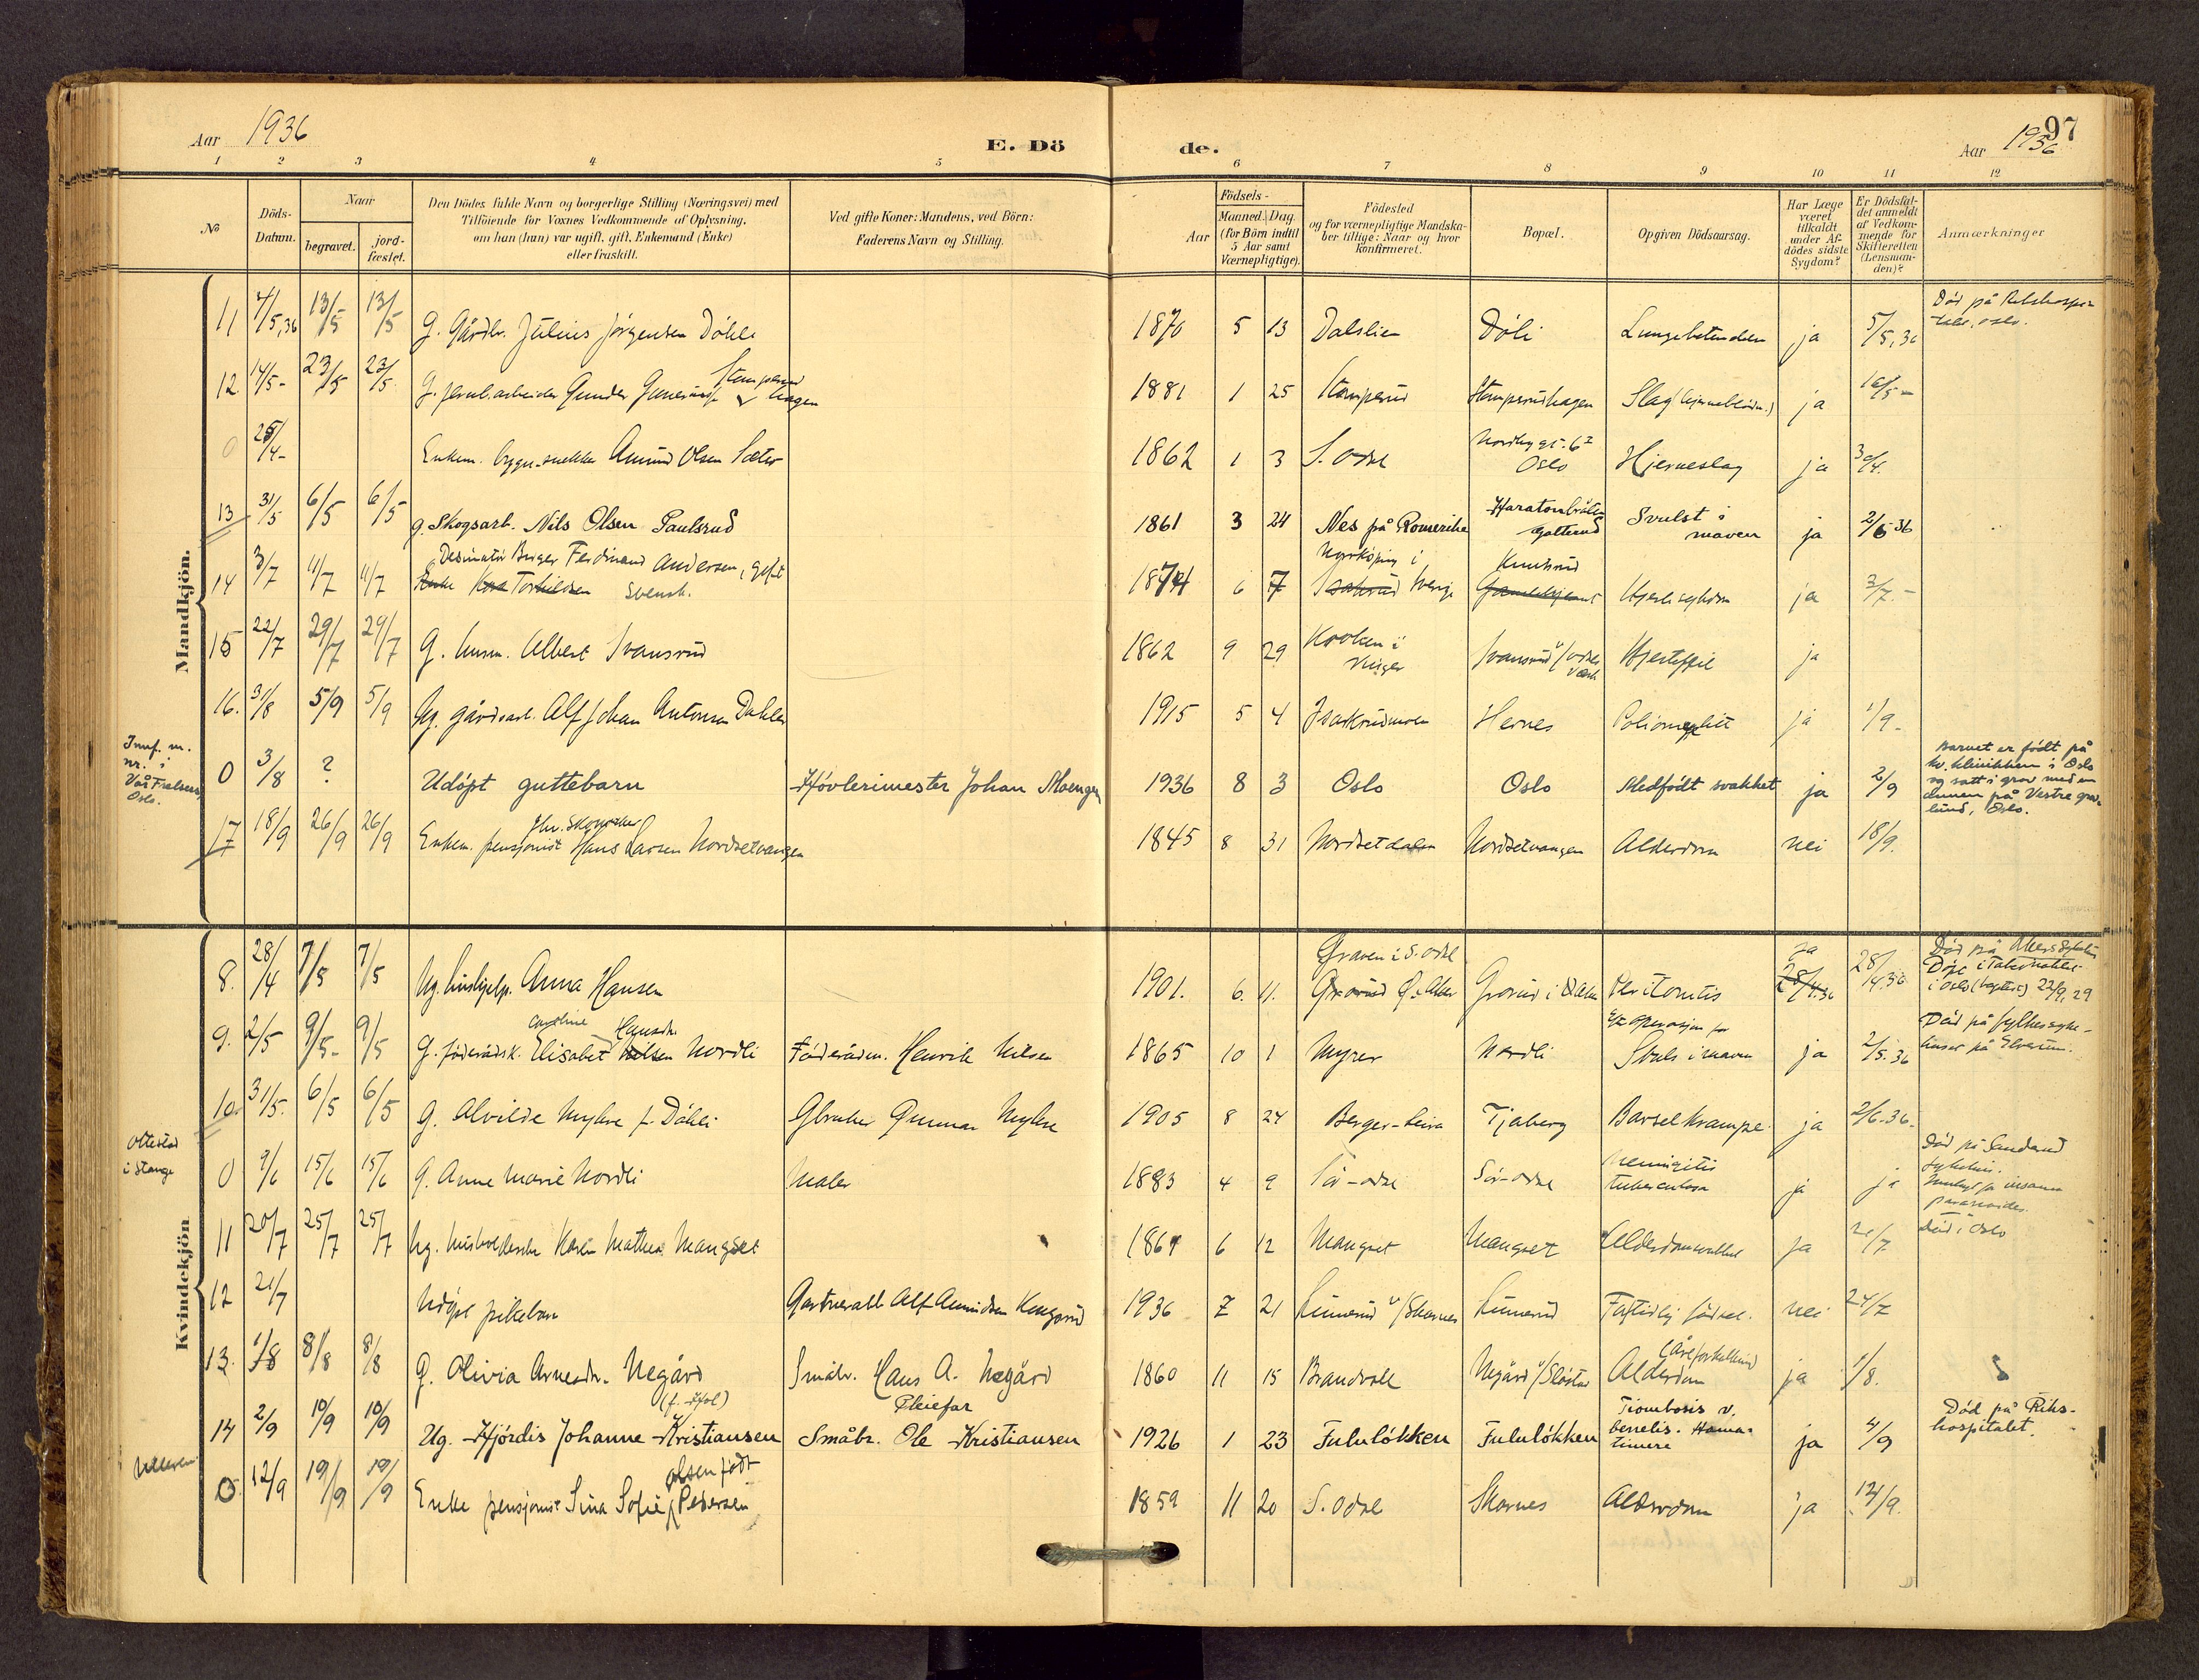 Aar 1936
E. Döde.
97
Aar 1936
1 2 3 4 5 6 7 8 9 10 11 12
No
Döds-Datum.
Naar
begravet.
jord-fæstet.
Den Dödes fulde Navn og borgerlige Stilling (Næringsvei) med
Tilföiende for Voxnes Vedkommende af Oplysning,
om han (hun) var ugift, gift, Enkemand (Enke)
eller fraskilt.
Ved gifte Koner: Mandens, ved Börn:
Faderens Navn og Stilling.
Aar
Födsels-
Maaned. Dag.
(for Börn indtil
5 Aar samt
Værnepligtige).
Födested
og for værnepligtige Mandska-
ber tillige: Naar og hvor
konfirmeret.
Bopæl.
Opgiven Dödsaarsag.
Har Læge
været
tilkaldt
under Af-
dödes sidste
Sygdom?
Er Dödsfal-
det anmeldt
af Vedkom-
mende for
Skifteretten
(Lensman-
den)?
Anmærkninger
Mandkjön.
11 4/5,36 13/5 13/5 G. Gårdbr. Julius Jörgensen Döhli 1870 5 13 Dalslien Döli Lungebetendelse ja 5/5,36 Död på Rikshospi-
talet, Oslo.
12 14/5- 23/5 23/5 G. jernb.arbeider Gunder Stamperudhagen 1881 1 25 Stamperud Stamperudhagen Slag (hjerneblödn.) ja 16/5-
0 28/4- Enkem. bygn.snekker Amund Olsen Sæter 1862 1 3 S. Odal Nordbygt. 6 Oslo Hjerneslag ja 30/4.
13 31/5 6/5 6/5 g. Skogsarb. Nils Olsen Paulsrud 1861 3 24 Nes på Romerike Haratonbråten Galterud Svulst i maven ja 2/6 36
14 3/7 11/7 11/7 Birger Ferdinand Andersen, gift Svensk. 1874 6 7 Norrköping i Sverige Knutsrud Hjertesygdom ja 3/7.-
15 22/7 29/7 29/7 G. husm. Albert Ivansrud 1862 9 29 Vinger Ivansrud Hjertefeil ja
16. 31/8 5/9 5/9 Ug. gårdsarb. Alf Johan Antonsen Dahlen 1915 5 4 Hernes Poliomyelitt ja 1/9-
Innf. m.
nr. i
Vår Frelsers,
Oslo.
0 3/8 ? Udöpt guttebarn Hövlerimester Johan Moengen 1936 8 3 Oslo Oslo Medfödt svakhet ja 2/9 Barnet er födt på
kv. klinikken i Oslo
og satt i grav med en
annen på Vestre grav-
lund, Oslo.
17 18/9 26/9 26/9 Enkem. pensjonist Hans Larsen Nordsetvangen 1845 8 31 Nordsetdalen Nordsetvangen Alderdom nei 18/9.
Kvindekjön
8. 28/4 7/5 7/5 Ug. hushjelp. Anna Hansen 1901. 6. 11. Graven i S. Odal Grorud i Ö. Aker Peritonitis ja 28/4.36 Död på Akers sykehus
Döpt i Tabernaklet
i Oslo (baptist) 22/9, 29
9. 2/5 9/5- 9/5 G. föderådsk. Elisabet Caroline Hansdtr. Nordli Föderådsm. Henrik Nilsen 1865 10 1 Myrer Nordli Efter operasjon for Svulst i maven ja 2/5.36 Död på fylkessyke-
huset på Elverum.
10. 31/5. 6/5 6/5 G. Alvilde Myhre f. Döhli Gbruker Gunnar Myhre 1905 8 24 Berger-Leira Tjaberg Barselkrampe ja 2/6-36-
Ottestad
i Stange
0 9/6 15/6 15/6 G. Anne Marie Nordli Maler 1883 4 9 Sör-Odal Sör-Odal Meningitis tuberculosa ja ja Död på Sanderud
sykehus.
paranoides.
11 20/7 25/7 25/7 Ug. husholderske Karen Mathea Mangset 1861 6 12 Mangset Mangset Alderdomssvakhet ja 21/7 Död i Oslo
12 21/7 Udöpt pikebarn Gartnerarb Alf Amundsen Kongsrud 1936 7 21 Linnerud v/Skarnes Linnerud Fortidlig födsel. nei 24/7
13. 1/8 8/8 8/8 G. Olivia Arnesdtr. Negård Småbr. Hans A. Negård 1860 11 15 Brandval Negård v/Slåstad Alderdom (Åreforkalkning ja 1/8.
14 2/9 10/9 10/9 Ug. Hjördis Johanne Kristiansen (f. Hol) Pleiefar Småbr. Ole Kristiansen 1926 1 23 Fululökken Fululökken Trombosis v. ja 4/9 Död på Riks-
hospitalet.
0 12/9 19/9 19/9 Enke pensjonist Sina Sofie Olsen födt Pedersen 1859 11 20 S. Odal Skarnes Alderdom ja 14/9.